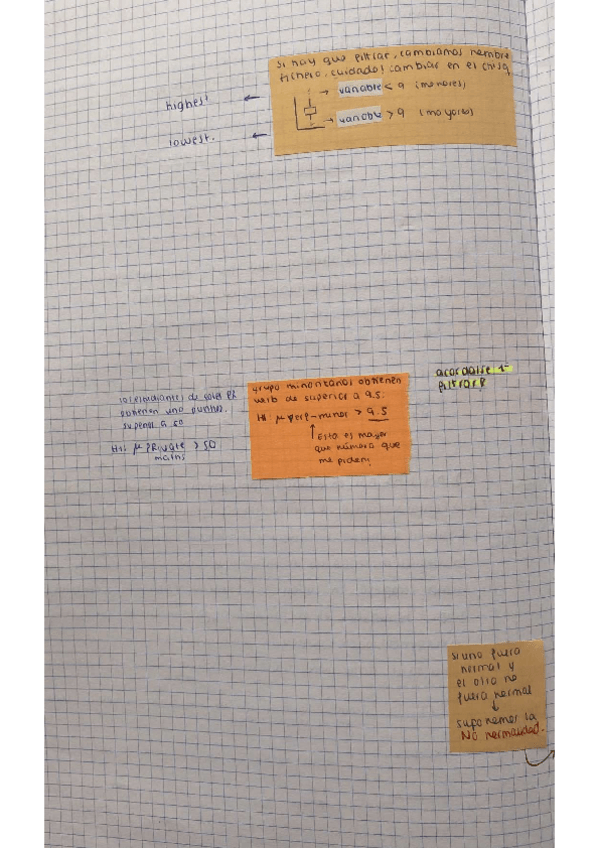 si hay que filtrar, cambiamos nombre
fichero, cuidado! cambiar en el chisq
highest ←
→ variable < 9 (menores)
lowest. ←
→ variable > 9 (mayores)
acordarse 1º
filtrar!
grupo minoritarios obtienen
verb de superior a 9.5:
H1: μ verb-minor > 9.5
↑ esto es mayor
que número que
me piden!
los estudiantes de
obtienen una puntua.
superior a 50
H1: μ private > 50
maths
si uno fuera
normal y
el otro no
fuera normal
↓
suponemos la
NO normalidad.